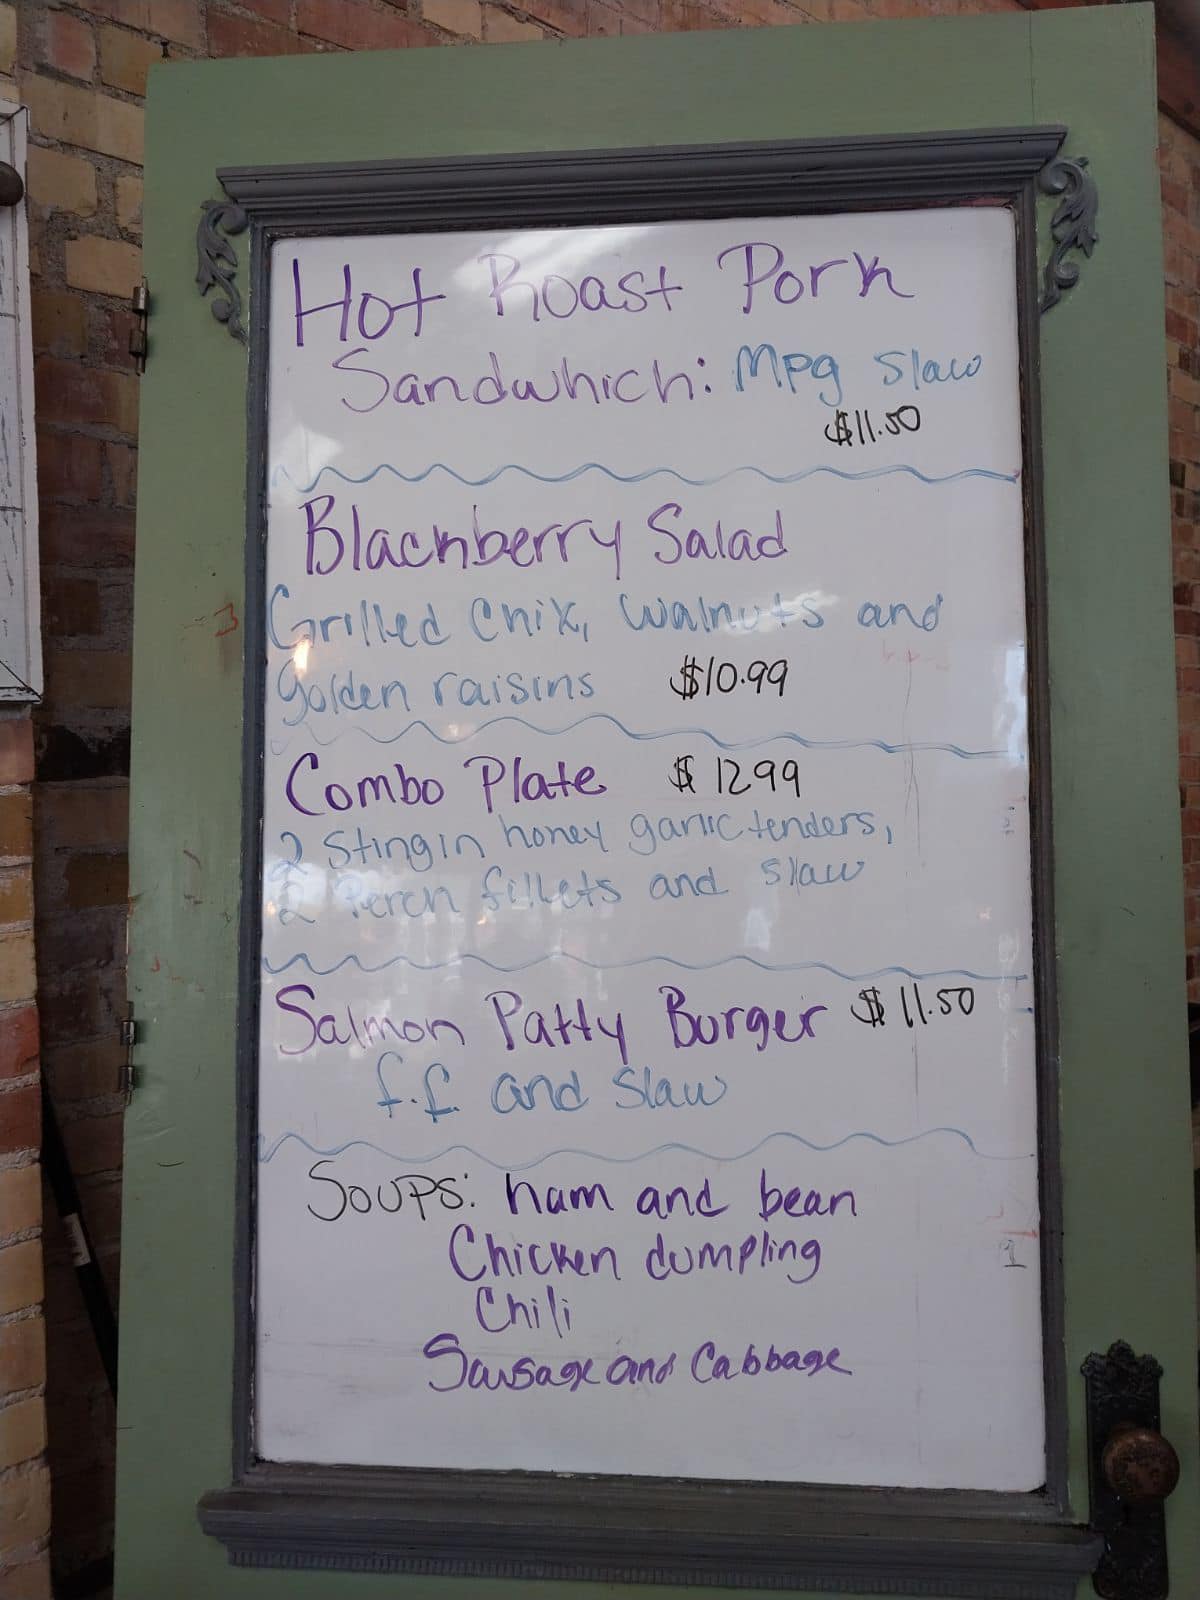 Hot Roast Pork
Sandwhich: Mpg Slaw
$11.50
Blackberry Salad
Grilled Chix, walnuts and
golden raisins $10.99
Combo Plate $12.99
2 Stingin honey garlic tenders,
2 Perch fillets and slaw
Salmon Patty Burger $11.50
f.f. and Slaw
Soups: ham and bean
Chicken dumpling
Chili
Sausage and Cabbage